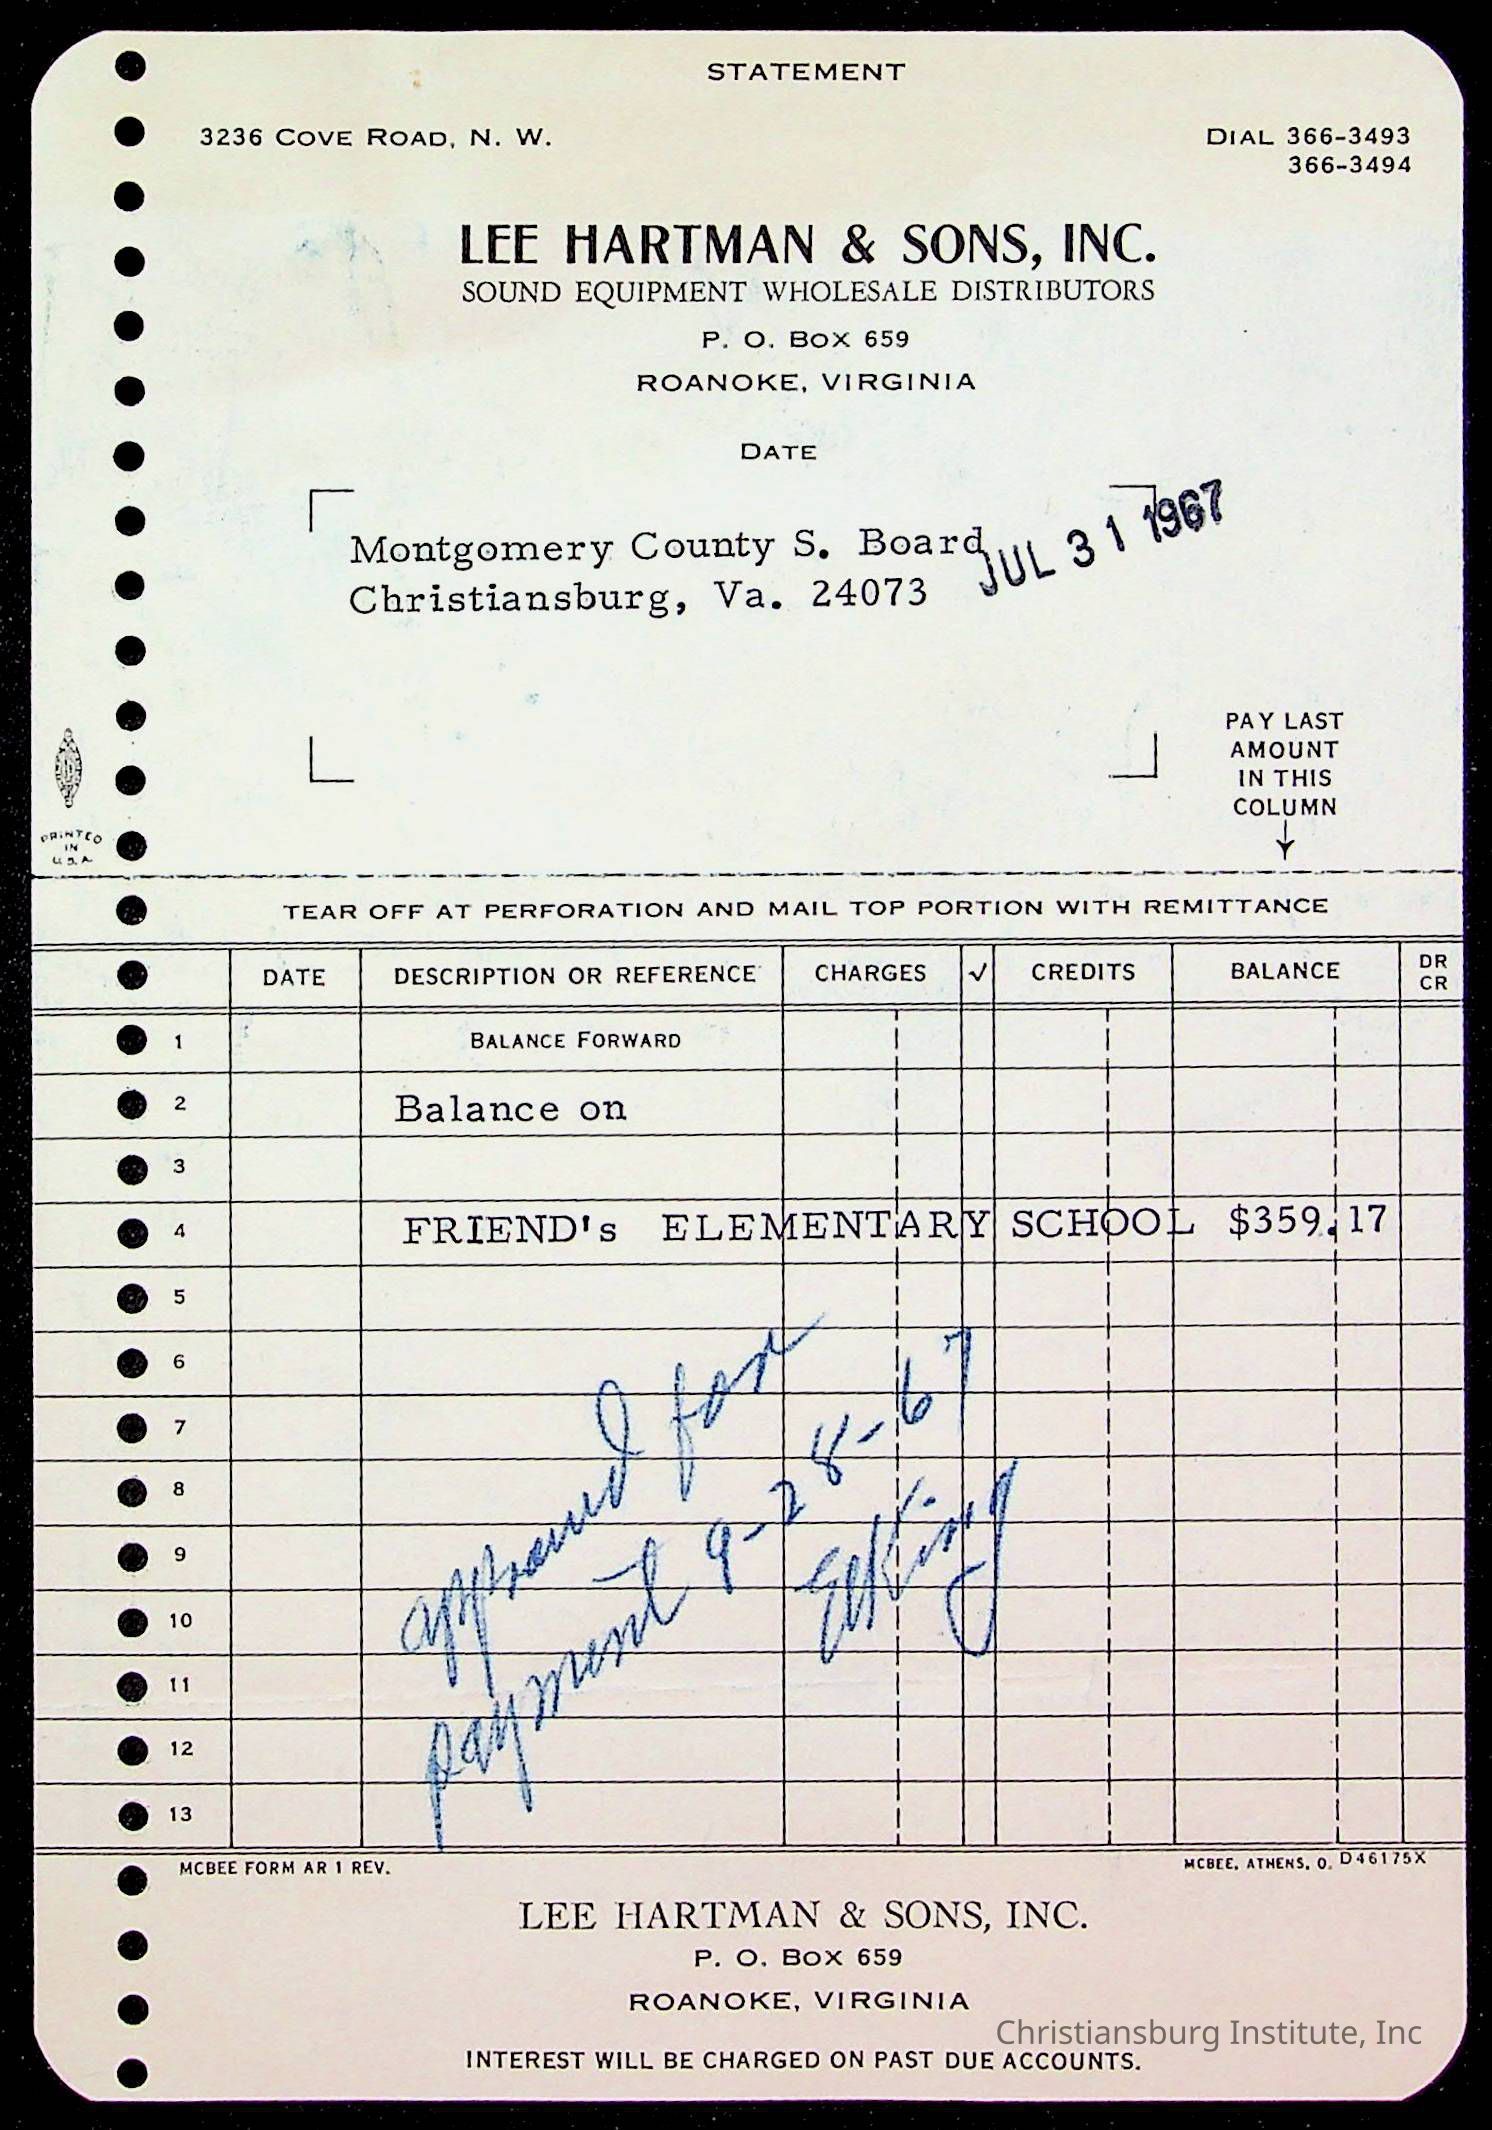 STATEMENT
3236 COVE ROAD, N. W.
DIAL 366-3493
366-3494
LEE HARTMAN & SONS, INC.
SOUND EQUIPMENT WHOLESALE DISTRIBUTORS
P. O. BOX 659
ROANOKE, VIRGINIA
DATE
JUL 31 1967
Montgomery County S. Board
Christiansburg, Va. 24073
PAY LAST
AMOUNT
IN THIS
COLUMN
PRINTED
IN
U.S.A.
TEAR OFF AT PERFORATION AND MAIL TOP PORTION WITH REMITTANCE
DATE DESCRIPTION OR REFERENCE CHARGES ✓ CREDITS BALANCE DR CR
1 BALANCE FORWARD
2 Balance on
3
4 FRIEND's ELEMENTARY SCHOOL $359.17
5
6
7
8
9
10
11
12
13
approved for
payment 9-28-67
King
MCBEE FORM AR 1 REV.
MCBEE, ATHENS, O. D46175X
LEE HARTMAN & SONS, INC.
P. O. BOX 659
ROANOKE, VIRGINIA
Christiansburg Institute, Inc
INTEREST WILL BE CHARGED ON PAST DUE ACCOUNTS.